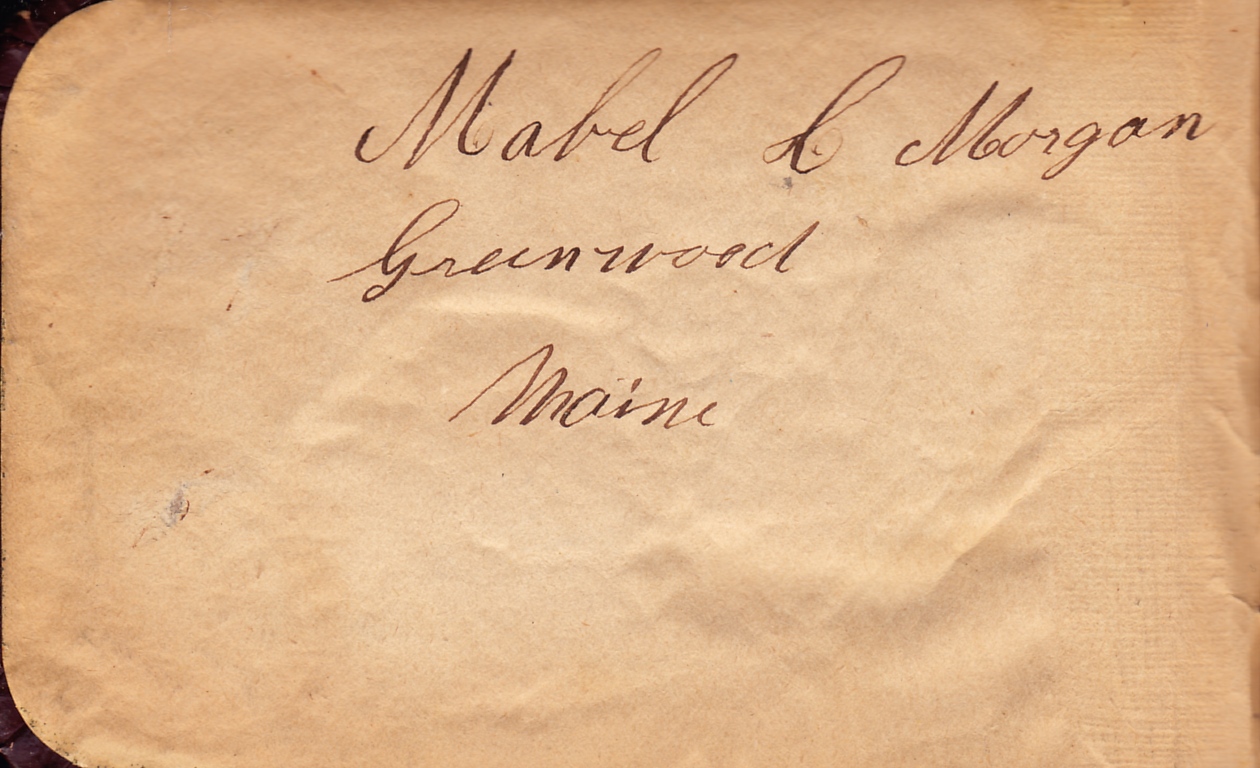 Mabel L Morgan
Greenwood
Maine